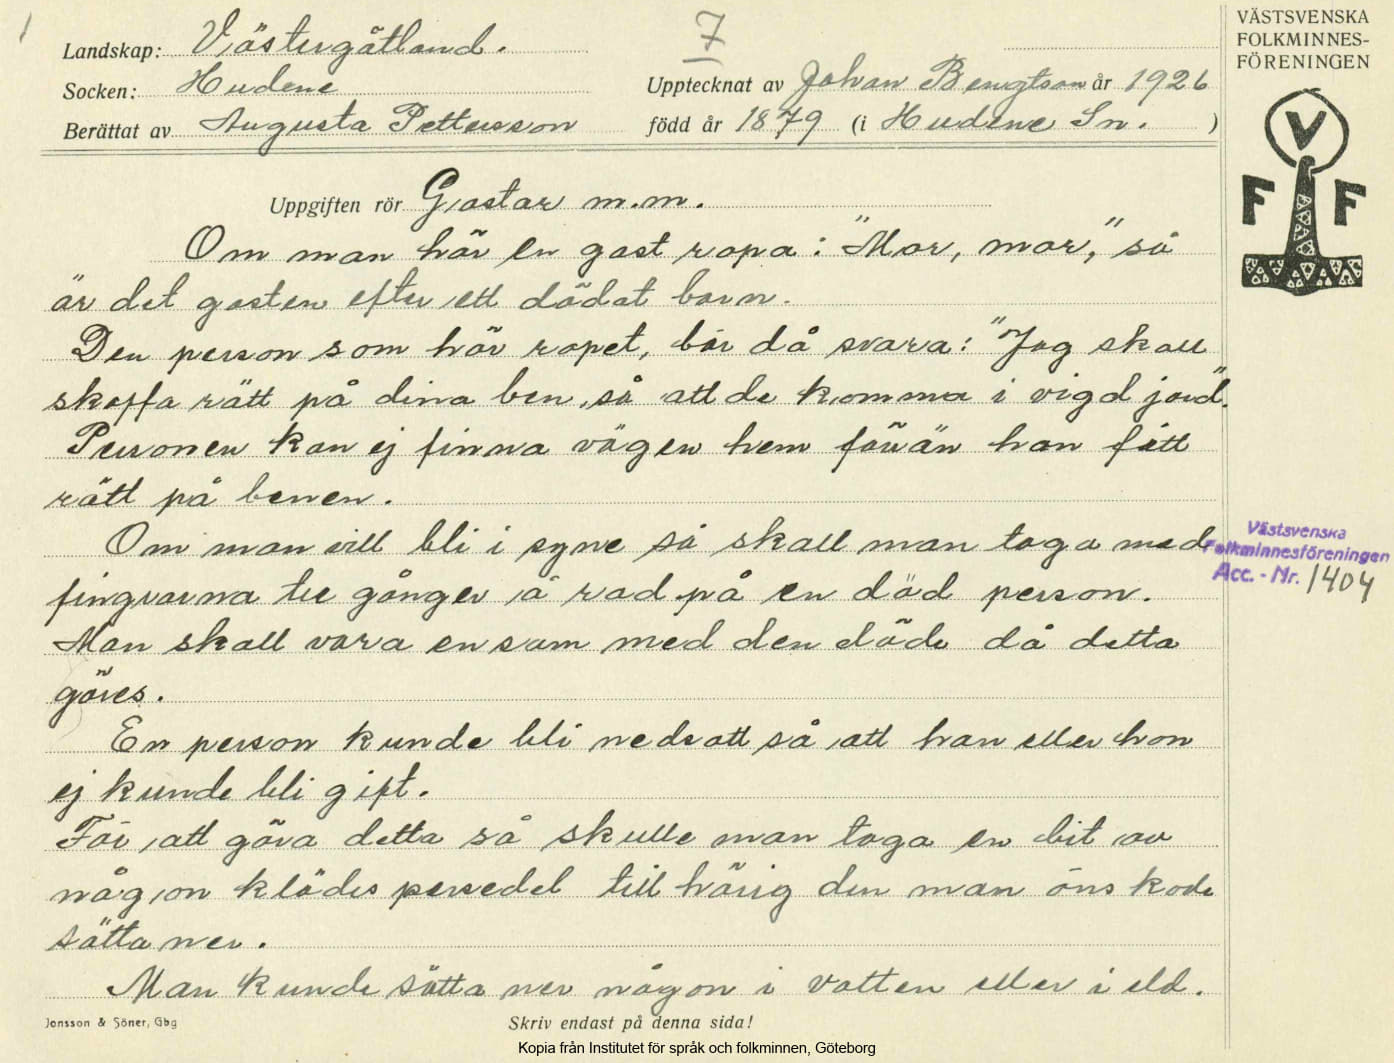 1
7
VÄSTSVENSKA
FOLKMINNES-
FÖRENINGEN
Landskap: Västergötland.
Socken: Hudene
Upptecknat av Johan Bengtson år 1926
Berättat av Augusta Pettersson
född år 1879 (i Hudene Sn. )
V
F F
Uppgiften rör Gastar m.m.
Om man hör en gast ropa: "Mor, mor," så
är det gasten efter ett dödat barn.
Den person som hör ropet, bör då svara: "Jag skall
skaffa rätt på dina ben, så att de komma i vigd jord".
Personen kan ej finna vägen hem förrän han fått
rätt på benen.
Om man vill bli i syne så skall man taga med
fingrarna tre gånger å rad på en död person.
Man skall vara ensam med den döde då detta
göres.
En person kunde bli nedsatt så att han eller hon
ej kunde bli gift.
För att göra detta så skulle man taga en bit av
någon klädes persedel till hörig den man önskade
sätta ner.
Man kunde sätta ner någon i vatten eller i eld.
Västsvenska
Folkminnesföreningen
Acc. - Nr. 1404
Jonsson & Söner, Gbg
Skriv endast på denna sida!
Kopia från Institutet för språk och folkminnen, Göteborg